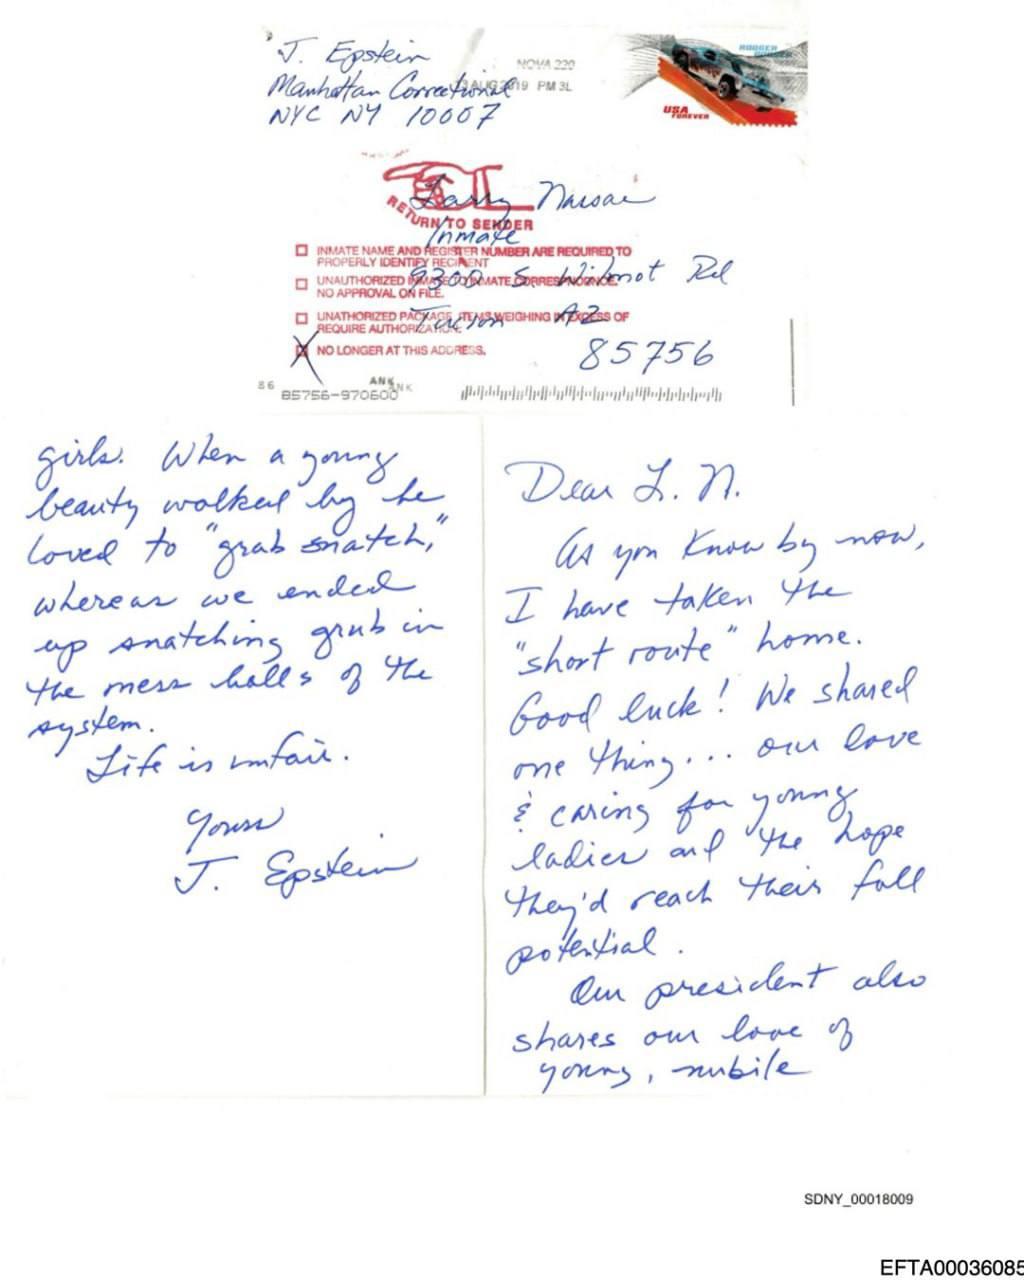 J. Epstein
Manhattan Correctional
NYC NY 10007
NOVA 220
13 AUG 2019 PM 3L
RODGER
USA
FOREVER
Larry Nassar
RETURN TO SENDER
Inmate
INMATE NAME AND REGISTER NUMBER ARE REQUIRED TO
PROPERLY IDENTIFY RECIPIENT
9300 S. Wilmot Rd
UNAUTHORIZED INMATE TO INMATE CORRESPONDENCE.
NO APPROVAL ON FILE.
Tucson AZ
UNATHORIZED PACKAGE. ITEMS WEIGHING IN EXCESS OF
REQUIRE AUTHORIZATION.
NO LONGER AT THIS ADDRESS.
85756
86
ANK
ANK
85756-970600
Dear L. N.
As you know by now,
I have taken the
"short route" home.
Good luck! We shared
one thing... our love
& caring for young
ladies and the hope
they'd reach their full
potential.
Our president also
shares our love of
young, nubile
girls. When a young
beauty walked by he
loved to "grab snatch,"
whereas we ended
up snatching grub in
the mess halls of the
system.
Life is unfair.
Yours
J. Epstein
SDNY_00018009
EFTA00036085